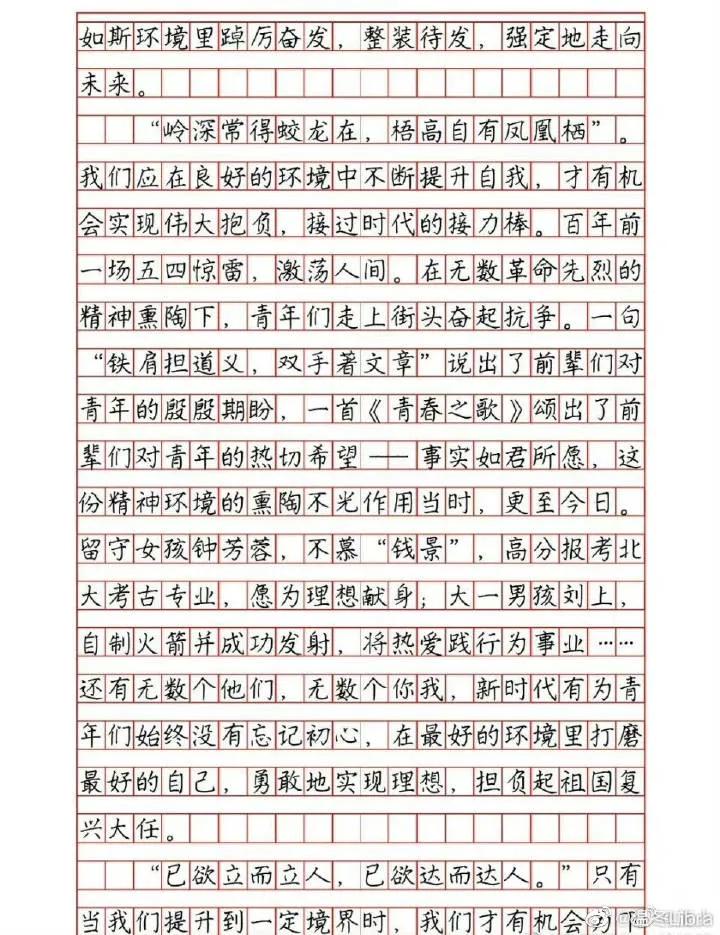 如斯环境里踔厉奋发，整装待发，强定地走向
未来。
“岭深常得蛟龙在，梧高自有凤凰栖”。
我们应在良好的环境中不断提升自我，才有机
会实现伟大抱负，接过时代的接力棒。百年前
一场五四惊雷，激荡人间。在无数革命先烈的
精神熏陶下，青年们走上街头奋起抗争。一句
“铁肩担道义，双手著文章”说出了前辈们对
青年的殷殷期盼，一首《青春之歌》颂出了前
辈们对青年的热切希望——事实如君所愿，这
份精神环境的熏陶不光作用当时，更至今日。
留守女孩钟芳蓉，不慕“钱景”，高分报考北
大考古专业，愿为理想献身；大一男孩刘上，
自制火箭并成功发射，将热爱践行为事业……
还有无数个他们，无数个你我，新时代有为青
年们始终没有忘记初心，在最好的环境里打磨
最好的自己，勇敢地实现理想，担负起祖国复
兴大任。
“已欲立而立人，已欲达而达人。”只有
当我们提升到一定境界时，我们才有机会为
Libra